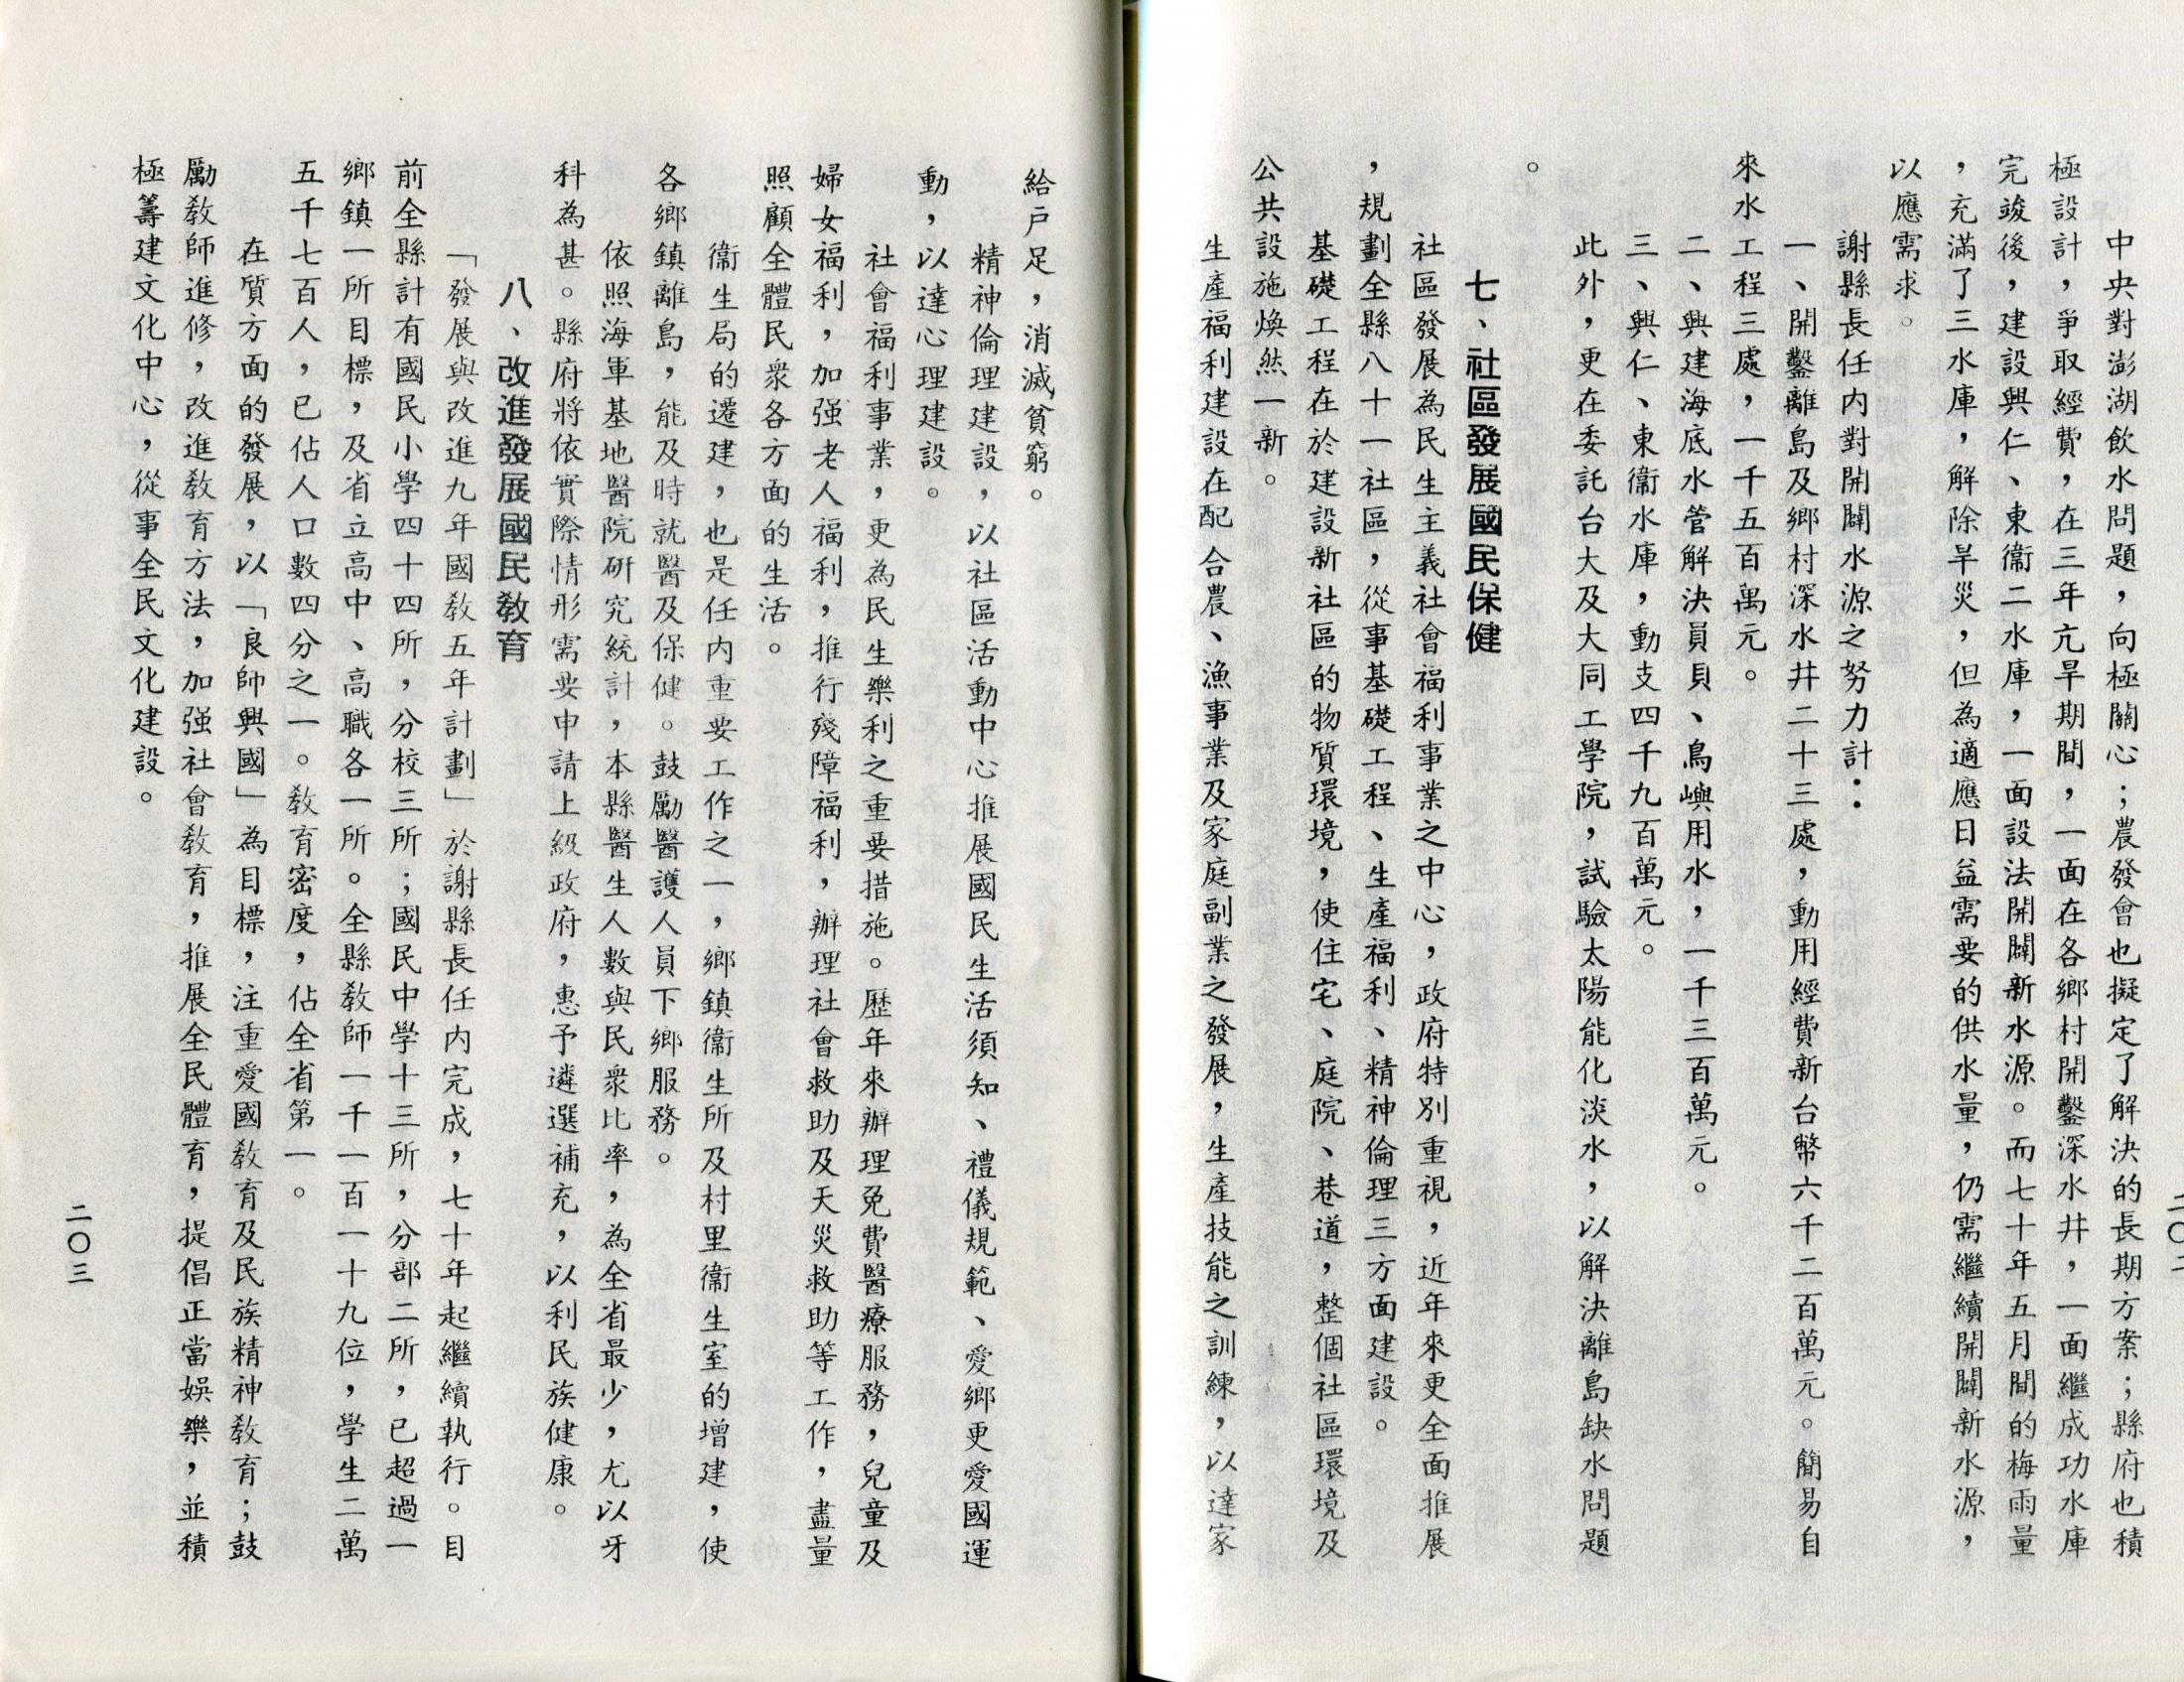 中央對澎湖飲水問題，向極關心；農發會也擬定了解決的長期方案；縣府也積
極設計，爭取經費，在三年亢旱期間，一面在各鄉村開鑿深水井，一面繼成功水庫
完竣後，建設興仁、東衞二水庫，一面設法開闢新水源。而七十年五月間的梅雨量
，充滿了三水庫，解除旱災，但為適應日益需要的供水量，仍需繼續開闢新水源，
以應需求。
謝縣長任內對開闢水源之努力計：
一、開鑿離島及鄉村深水井二十三處，動用經費新台幣六千二百萬元。簡易自
來水工程三處，一千五百萬元。
二、興建海底水管解決員貝、鳥嶼用水，一千三百萬元。
三、興仁、東衞水庫，動支四千九百萬元。
此外，更在委託台大及大同工學院，試驗太陽能化淡水，以解決離島缺水問題
。
七、社區發展國民保健
社區發展為民生主義社會福利事業之中心，政府特別重視，近年來更全面推展
，規劃全縣八十一社區，從事基礎工程、生產福利、精神倫理三方面建設。
基礎工程在於建設新社區的物質環境，使住宅、庭院、巷道，整個社區環境及
公共設施煥然一新。
生產福利建設在配合農、漁事業及家庭副業之發展，生產技能之訓練，以達家
給戶足，消滅貧窮。
精神倫理建設，以社區活動中心推展國民生活須知、禮儀規範、愛鄉更愛國運
動，以達心理建設。
社會福利事業，更為民生樂利之重要措施。歷年來辦理免費醫療服務，兒童及
婦女福利，加强老人福利，推行殘障福利，辦理社會救助及天災救助等工作，盡量
照顧全體民衆各方面的生活。
衞生局的遷建，也是任內重要工作之一，鄉鎮衞生所及村里衞生室的增建，使
各鄉鎮離島，能及時就醫及保健。鼓勵醫護人員下鄉服務。
依照海軍基地醫院研究統計，本縣醫生人數與民衆比率，為全省最少，尤以牙
科為甚。縣府將依實際情形需要申請上級政府，惠予遴選補充，以利民族健康。
八、改進發展國民教育
「發展與改進九年國教五年計劃」於謝縣長任內完成，七十年起繼續執行。目
前全縣計有國民小學四十四所，分校三所；國民中學十三所，分部二所，已超過一
鄉鎮一所目標，及省立高中、高職各一所。全縣教師一千一百一十九位，學生二萬
五千七百人，已佔人口數四分之一。教育密度，佔全省第一。
在質方面的發展，以「良師興國」為目標，注重愛國教育及民族精神教育；鼓
勵教師進修，改進教育方法，加强社會教育，推展全民體育，提倡正當娛樂，並積
極籌建文化中心，從事全民文化建設。
二〇三